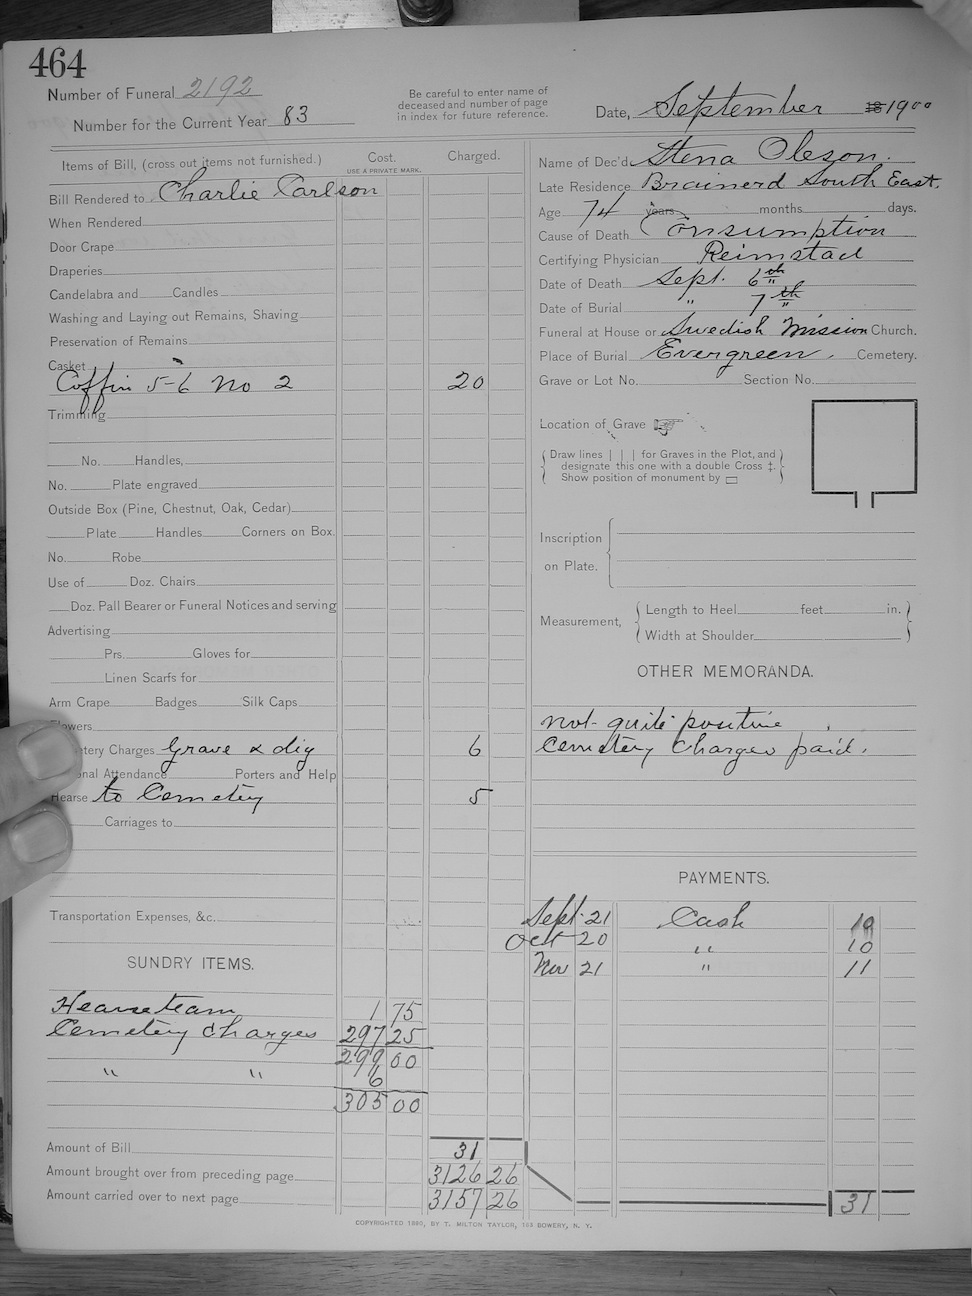 464
Number of Funeral 2192
Number for the Current Year 83
Be careful to enter name of
deceased and number of page
in index for future reference.
Date, September 18 1900
Items of Bill, (cross out items not furnished.) Cost. Charged.
USE A PRIVATE MARK.
Bill Rendered to Charlie Carlson
When Rendered
Door Crape
Draperies
Candelabra and Candles
Washing and Laying out Remains, Shaving
Preservation of Remains
Casket
Coffin 5-6 No 2 20
Trimming
No. Handles,
No. Plate engraved
Outside Box (Pine, Chestnut, Oak, Cedar)
Plate Handles Corners on Box.
No. Robe
Use of Doz. Chairs
Doz. Pall Bearer or Funeral Notices and serving
Advertising
Prs. Gloves for
Linen Scarfs for
Arm Crape Badges Silk Caps
Flowers
etery Charges Grave & dig 6
nal Attendance Porters and Help
Hearse to Cemetery 5
Carriages to
Transportation Expenses, &c.
SUNDRY ITEMS.
Hearse team 1 75
Cemetery charges 297 25
299 00
" " 6
305 00
Amount of Bill 31
Amount brought over from preceding page 3126 26
Amount carried over to next page 3157 26
Name of Dec'd Stena Oleson.
Late Residence Brainerd South East.
Age 74 years months days.
Cause of Death Consumption
Certifying Physician Reimstad
Date of Death Sept. 6th
Date of Burial " 7th
Funeral at House or Swedish Mission Church.
Place of Burial Evergreen. Cemetery.
Grave or Lot No. Section No.
Location of Grave
Draw lines | | | for Graves in the Plot, and
designate this one with a double Cross ‡.
Show position of monument by
Inscription
on Plate.
Measurement,
Length to Heel feet in.
Width at Shoulder
OTHER MEMORANDA.
not quite positive
Cemetery Charges paid.
PAYMENTS.
Sept. 21 Cash 10
Oct 20 " 10
Nov 21 " 11
31
COPYRIGHTED 1880, BY T. MILTON TAYLOR, 168 BOWERY, N. Y.